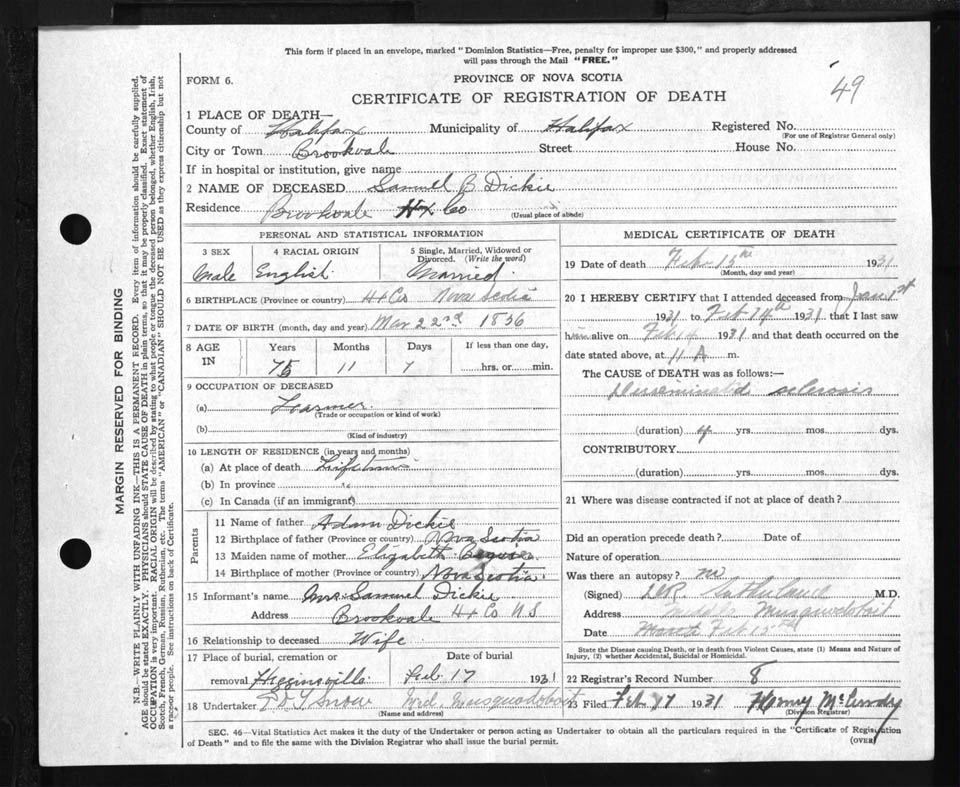 This form if placed in an envelope, marked "Dominion Statistics—Free, penalty for improper use $300," and properly addressed
will pass through the Mail "FREE."
FORM 6.
PROVINCE OF NOVA SCOTIA
49
CERTIFICATE OF REGISTRATION OF DEATH
1 PLACE OF DEATH—
County of Halifax Municipality of Halifax Registered No.
(For use of Registrar General only)
City or Town Brookvale Street House No.
If in hospital or institution, give name
2 NAME OF DECEASED Samuel B Dickie
Residence Brookvale Hx Co
(Usual place of abode)
PERSONAL AND STATISTICAL INFORMATION
3 SEX 4 RACIAL ORIGIN 5 Single, Married, Widowed or
Divorced. (Write the word)
Male English Married
6 BIRTHPLACE (Province or country) Hx Co Nova Scotia
7 DATE OF BIRTH (month, day and year) Mar 22nd 1856
8 AGE IN Years Months Days If less than one day,
75 11 7 hrs. or min.
9 OCCUPATION OF DECEASED
(a) Farmer
(Trade or occupation or kind of work)
(b)
(Kind of industry)
10 LENGTH OF RESIDENCE (in years and months)
(a) At place of death Lifetime
(b) In province "
(c) In Canada (if an immigrant)
Parents
11 Name of father Adam Dickie
12 Birthplace of father (Province or country) Nova Scotia
13 Maiden name of mother Elizabeth
14 Birthplace of mother (Province or country) Nova Scotia
15 Informant's name Mrs Samuel Dickie
Address Brookvale Hx Co N S
16 Relationship to deceased Wife
17 Place of burial, cremation or Date of burial
removal Higginsville Feb 17 1931
18 Undertaker Snow Mid. Musquodoboit
(Name and address)
MEDICAL CERTIFICATE OF DEATH
19 Date of death Feb 15th 1931
(Month, day and year)
20 I HEREBY CERTIFY that I attended deceased from Jan 1st
1931 to Feb 14th 1931 that I last saw
him alive on Feb 14 1931 and that death occurred on the
date stated above, at 11 A m.
The CAUSE of DEATH was as follows:—
Disseminated sclerosis
(duration) 4 yrs. mos. dys.
CONTRIBUTORY
(duration) yrs. mos. dys.
21 Where was disease contracted if not at place of death?
Did an operation precede death? Date of
Nature of operation
Was there an autopsy? no
(Signed) Sutherland M.D.
Address Middle Musquodoboit
Date March Feb 15th
State the Disease causing Death, or in death from Violent Causes, state (1) Means and Nature of
Injury, (2) whether Accidental, Suicidal or Homicidal.
22 Registrar's Record Number 8
23 Filed Feb 17 1931 Henry McCurdy
(Division Registrar)
SEC. 46—Vital Statistics Act makes it the duty of the Undertaker or person acting as Undertaker to obtain all the particulars required in the "Certificate of Registration
of Death" and to file the same with the Division Registrar who shall issue the burial permit.
(OVER)
MARGIN RESERVED FOR BINDING
N.B.—WRITE PLAINLY WITH UNFADING INK—THIS IS A PERMANENT RECORD. Every item of information should be carefully supplied.
AGE should be stated EXACTLY. PHYSICIANS should STATE CAUSE OF DEATH in plain terms, so that it may be properly classified. Exact statement of
OCCUPATION is very important. RACIAL ORIGIN will be described by stating to what people or tongue the deceased person belonged, whether English, Irish,
Scotch, French, German, Russian, Ruthenian, etc. The terms "AMERICAN" or "CANADIAN" SHOULD NOT BE USED as they express citizenship but not
a race or people. See instructions on back of Certificate.